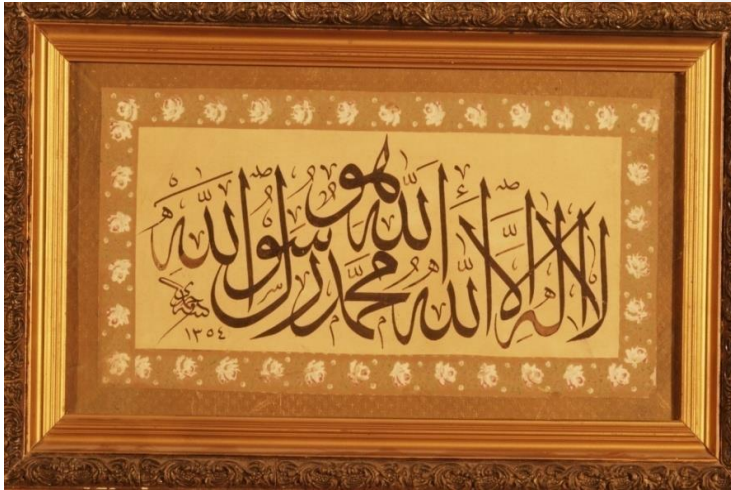 لا اله الا الله الله هو محمد رسول الله
١٣٥٤